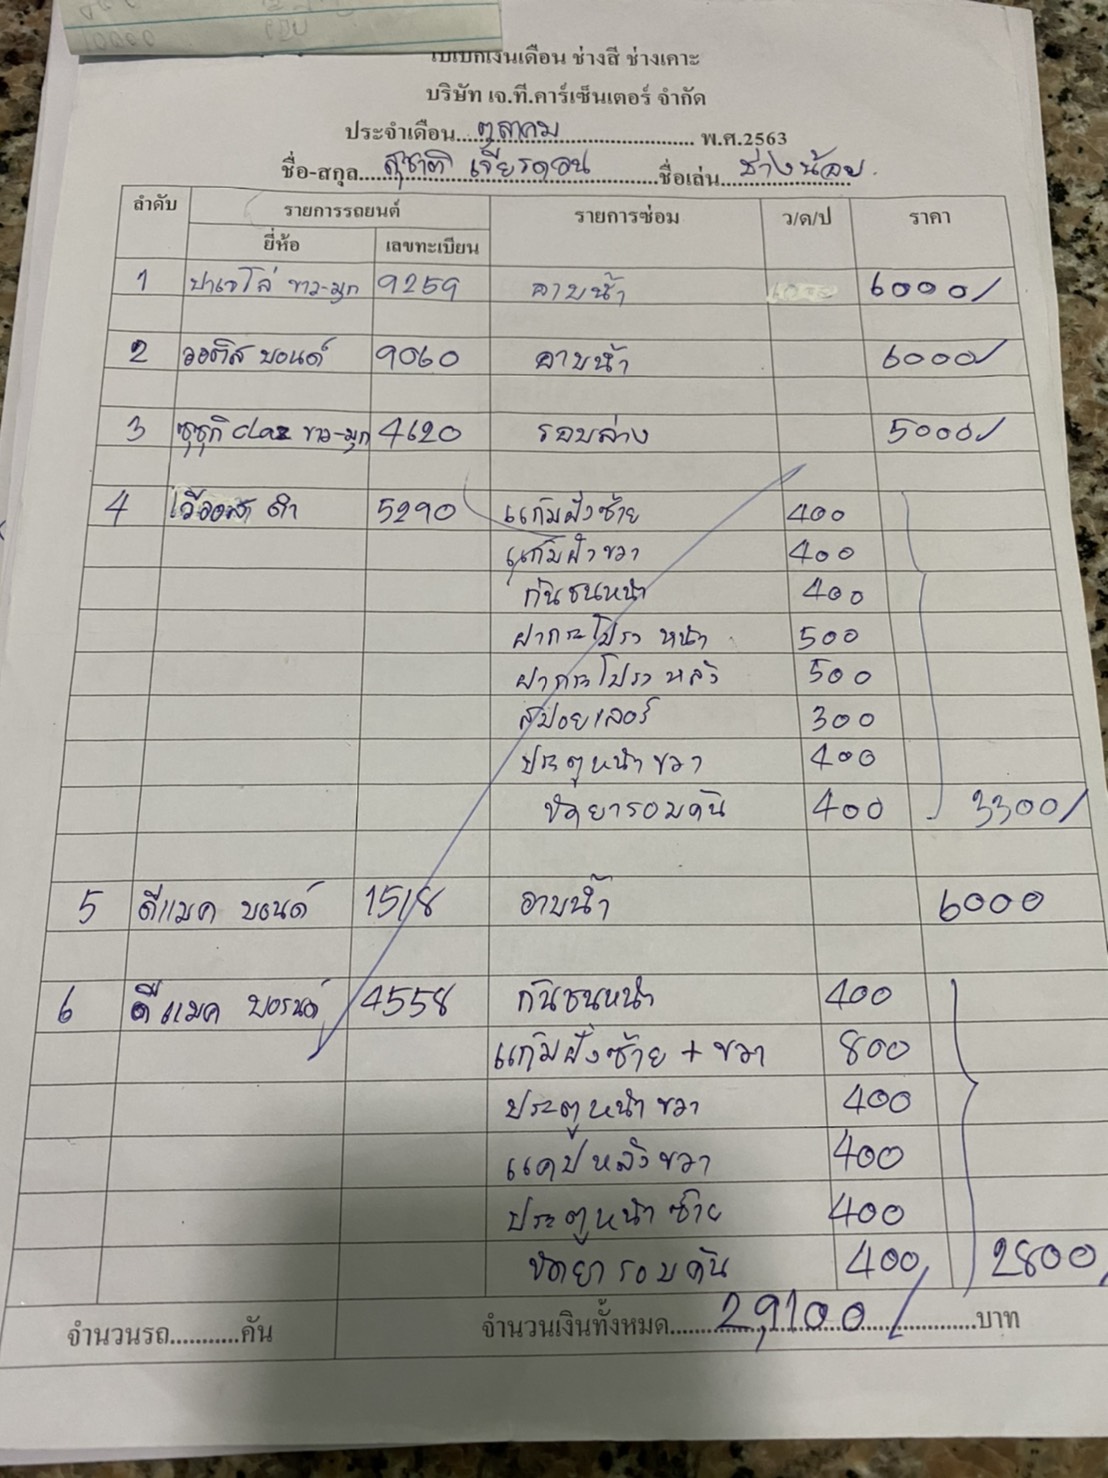 ใบเบิกเงินเดือน ช่างสี ช่างเคาะ
บริษัท เจ.ที.คาร์เซ็นเตอร์ จำกัด
ประจำเดือน ตุลาคม พ.ศ.2563
ชื่อ-สกุล สุชาติ เจียรดอน ชื่อเล่น ช่างน้อย.
ลำดับ รายการรถยนต์ รายการซ่อม ว/ด/ป ราคา
ยี่ห้อ เลขทะเบียน
1 ปาเจโร่ ขาว-มุก 9259 อาบน้ำ 6000/
2 บอนด์ 9060 อาบน้ำ 6000/
3 ซูซูกิ ciaz ขาว-มุก 4620 รอบล่าง 5000/
4 ดำ 5290 แก้มฝั่งซ้าย 400
แก้มฝั่งขวา 400
กันชนหน้า 400
ฝากระโปรง หน้า 500
ฝากระโปรง หลัง 500
สปอยเลอร์ 300
ประตูหน้า ขวา 400
ขัดยารอบคัน 400 3300/
5 ดีแมค บอนด์ 1518 อาบน้ำ 6000
6 ดีแมค บอรนด์ 4558 กันชนหน้า 400
แก้มฝั่งซ้าย + ขวา 800
ประตูหน้า ขวา 400
แคปหลังขวา 400
ประตูหน้า ซ้าย 400
ขัดยา รอบคัน 400 2800/
จำนวนรถ...........คัน จำนวนเงินทั้งหมด 29,100/ บาท